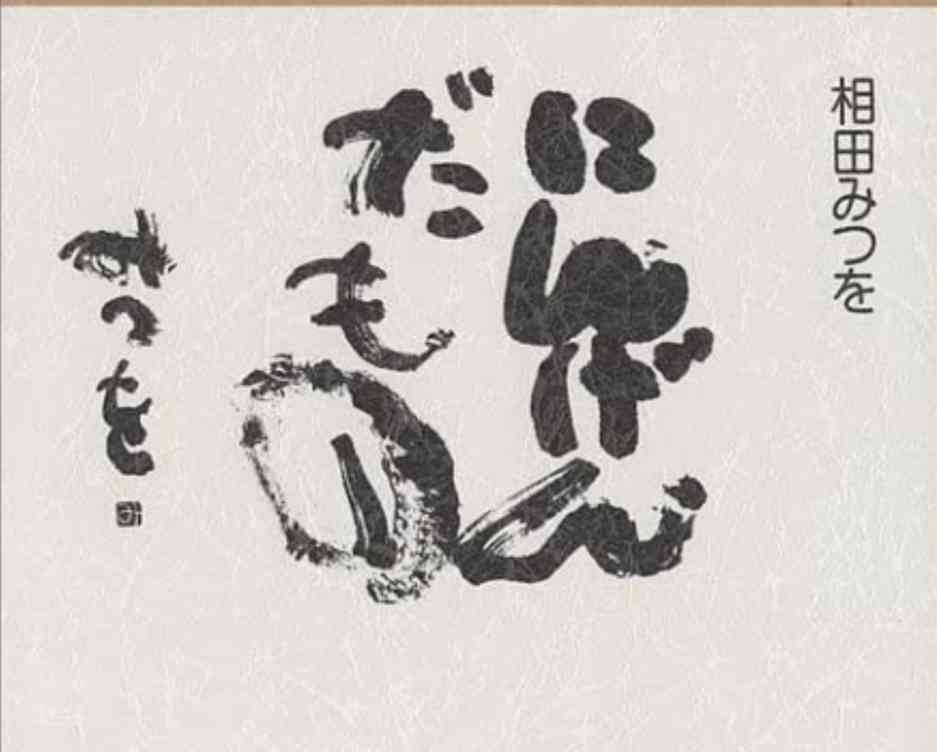 相田みつを
にんげん
だもの
みつを